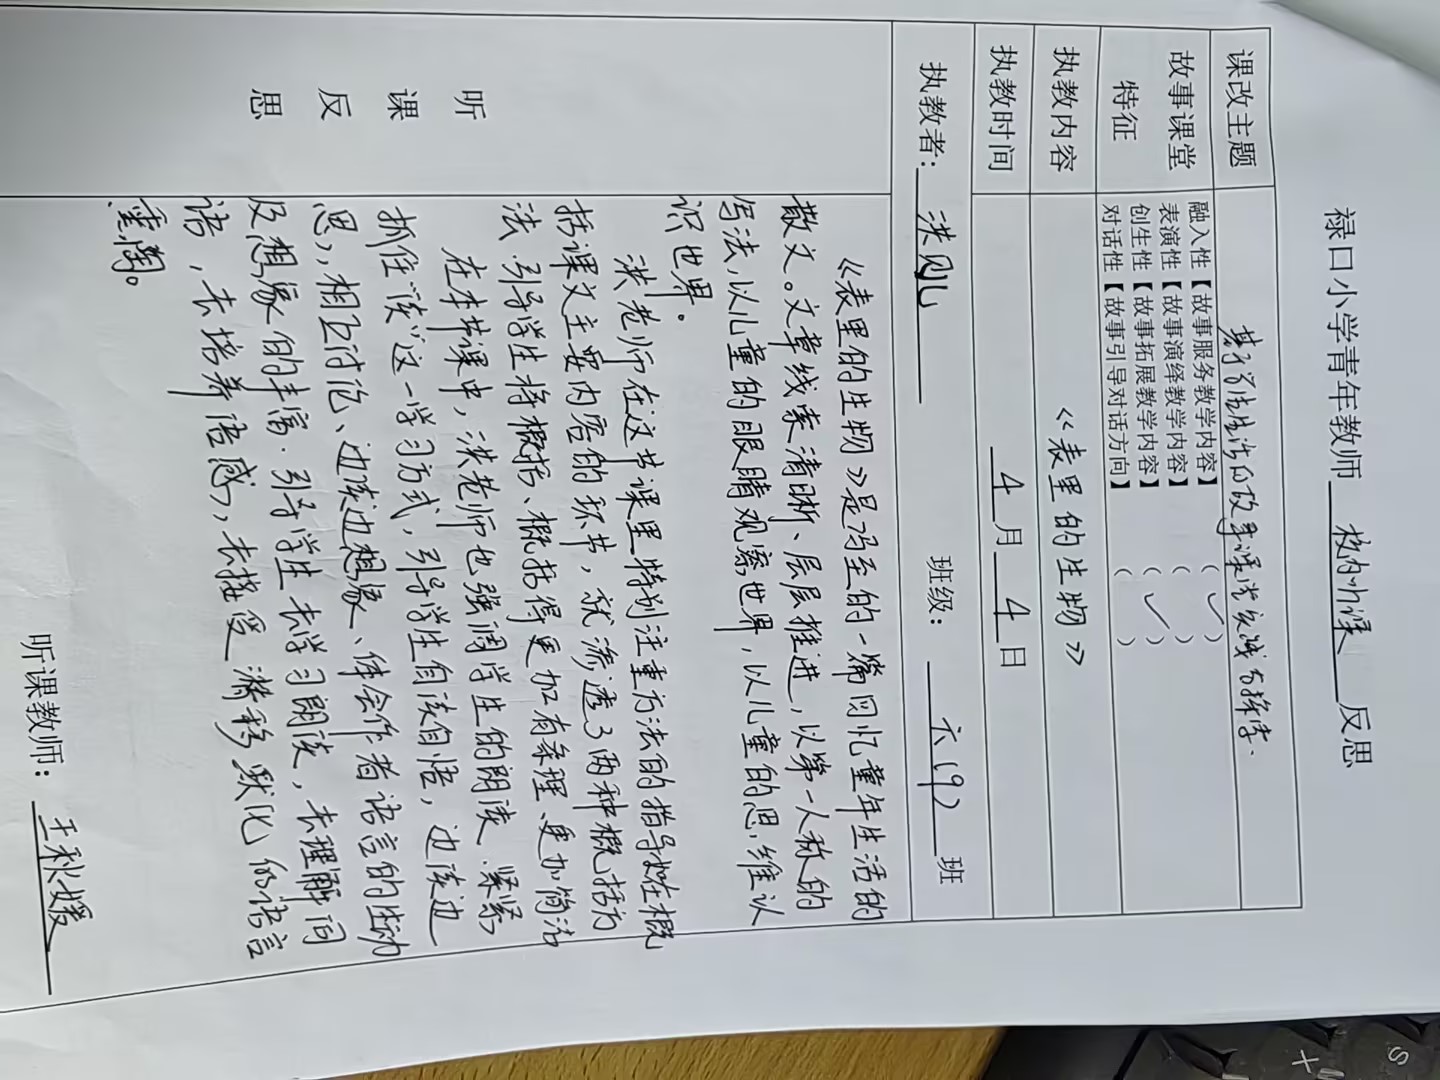 禄口小学青年教师 校内听课 反思
课改主题 基于学生生活的故事课堂实践与探索.
故事课堂特征
融入性【故事服务教学内容】 (✓)
表演性【故事演绎教学内容】 ( )
创生性【故事拓展教学内容】 (✓)
对话性【故事引导对话方向】 ( )
执教内容 《表里的生物》
执教时间 4月4日
执教者: 洪 班级: 六(9)班
听课反思
《表里的生物》是冯至的一篇回忆童年生活的
散文。文章线索清晰、层层推进,以第一人称的
写法,以儿童的眼睛观察世界,以儿童的思维认
识世界。
洪老师在这节课里特别注重方法的指导如在概
括课文主要内容的环节,就渗透了两种概括方
法.引导学生将概括、概括得更加有条理、更加简洁
在本节课中,洪老师也强调学生的朗读.紧紧
抓住“读”这一学习方式,引导学生自读自悟,边读边
思,相互讨论、边读边想象、体会作者语言的生动
及想象的丰富.引导学生去学习朗读,去理解词
语,去培养语感,去接受潜移默化的语言
熏陶。
听课教师: 王秋媛